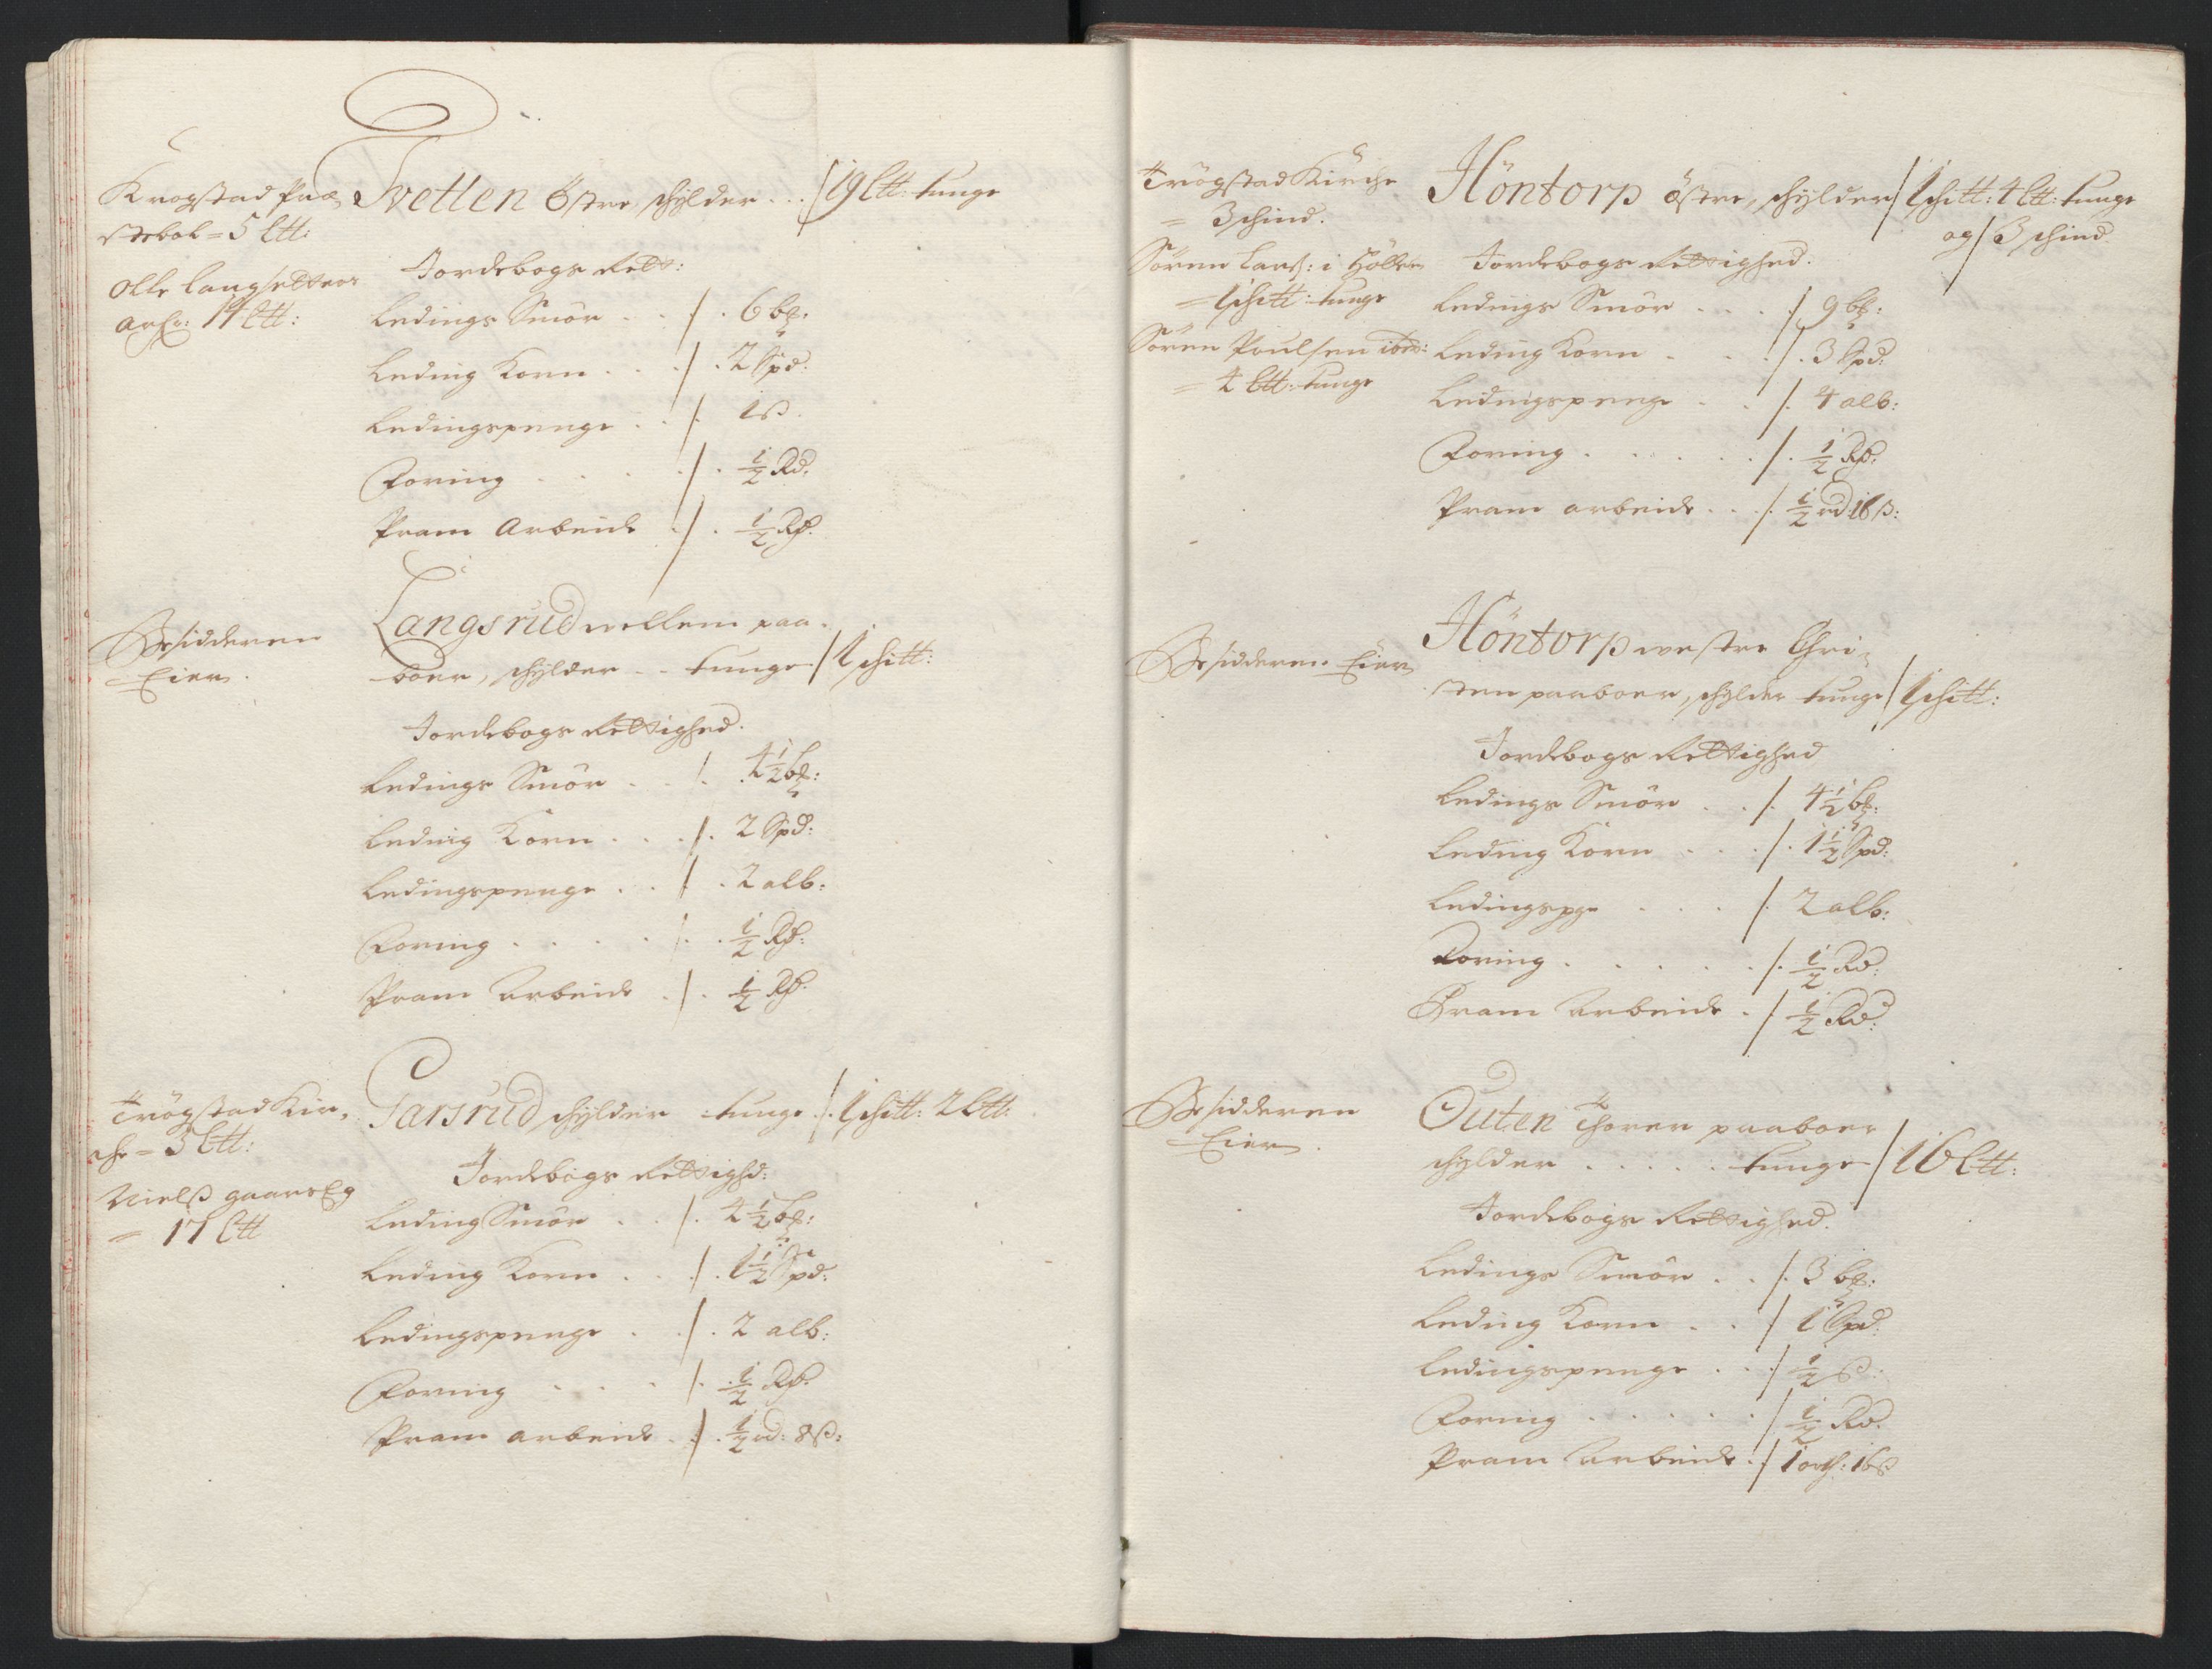 Krogstad Præ,
stebol = 5 Ltt:
Olle Langsetters
arfr: 14 Ltt:
Tvetten östre, schylder . . . 19 Ltt: tunge
Jordebogs Rett:
Ledings Smör . . 6 bp:
Leding Korn . . . 2 Spd:
Ledingspenge . . 1 ß.
Foring . . . . ½ Rd.
Pram Arbeide . ½ Rd.
Besidderen
Eier.
Langsrud wellem paa-
boer, schylder - - tunge 1 schtt:
Jordebogs Rettighed.
Ledings Smör . . . 4½ bp:
Leding Korn . . . 2 Spd:
Ledingspenge . . . 2 alb:
Foring . . . . . ½ Rd:
Pram Arbeide . . ½ Rd.
Trögstad Kir,
che = 3 Ltt:
Nielß
= 17 Ltt
Garsrud schylder tunge . 1 schtt: 2 Ltt:
Jordebogs Rettighd:
Leding Smör . . . 4½ bp:
Leding Korn . . . 1½ Spd:
Ledingspenge . . . 2 alb:
Foring . . . . ½ Rd.
Pram arbeide . . ½ rd: 8 ß:
Trögstad Kirche
= 3 schind.
Sören Larß: i
= 1 schtt: tunge
Sören Poulsen ibid:
= 4 Ltt: tunge
Höntorp östre, schylder 1 schtt: 4 Ltt: tunge
og 3 schind
Jordebogs Rettighed.
Ledings Smör . . . 9 bp:
Leding Korn . . . 3 Spd:
Ledingspenge . . . 4 alb:
Foring . . . . . ½ Rd:
Pram arbeide . . . ½ rd 16 ß:
Besidderen Eier
Höntorp westre Chri-
sten paaboer, schylder tunge 1 schtt:
Jordebogs Rettighed
Ledings Smör . . . 4½ bp:
Leding Korn . . . 1½ Spd:
Ledingspge . . . 2 alb:
Foring . . . . . ½ Rd:
Pram Arbeide . ½ Rd:
Besidderen
Eier.
Outen Thorer paaboer
schylder . . . . . tunge 16 Ltt:
Jordebogs Rettighed.
Ledings Smör . . . 3 bp:
Leding Korn . . 1 Spd:
Ledingspenge . . ½ ß:
Foring . . . . . ½ Rd.
Pram Arbeide . 1 orth: 16 ß